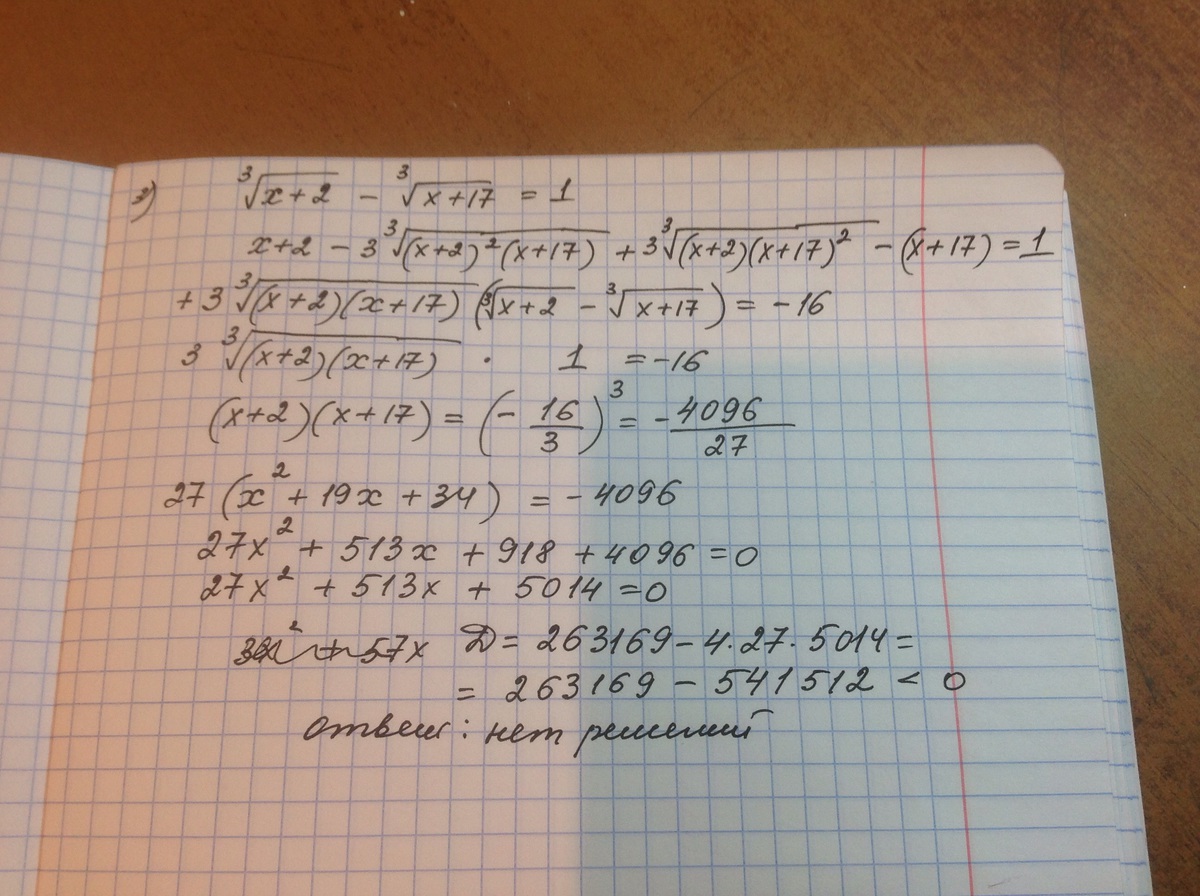 2) ∛(x+2) − ∛(x+17) = 1
x+2 − 3∛((x+2)²(x+17)) + 3∛((x+2)(x+17)²) − (x+17) = 1
+ 3∛((x+2)(x+17)) (∛(x+2) − ∛(x+17)) = −16
3∛((x+2)(x+17)) · 1 = −16
(x+2)(x+17) = (−16/3)³ = −4096/27
27(x² + 19x + 34) = −4096
27x² + 513x + 918 + 4096 = 0
27x² + 513x + 5014 = 0
+ 57x D = 263169 − 4·27·5014 =
= 263169 − 541512 < 0
ответ: нет решений